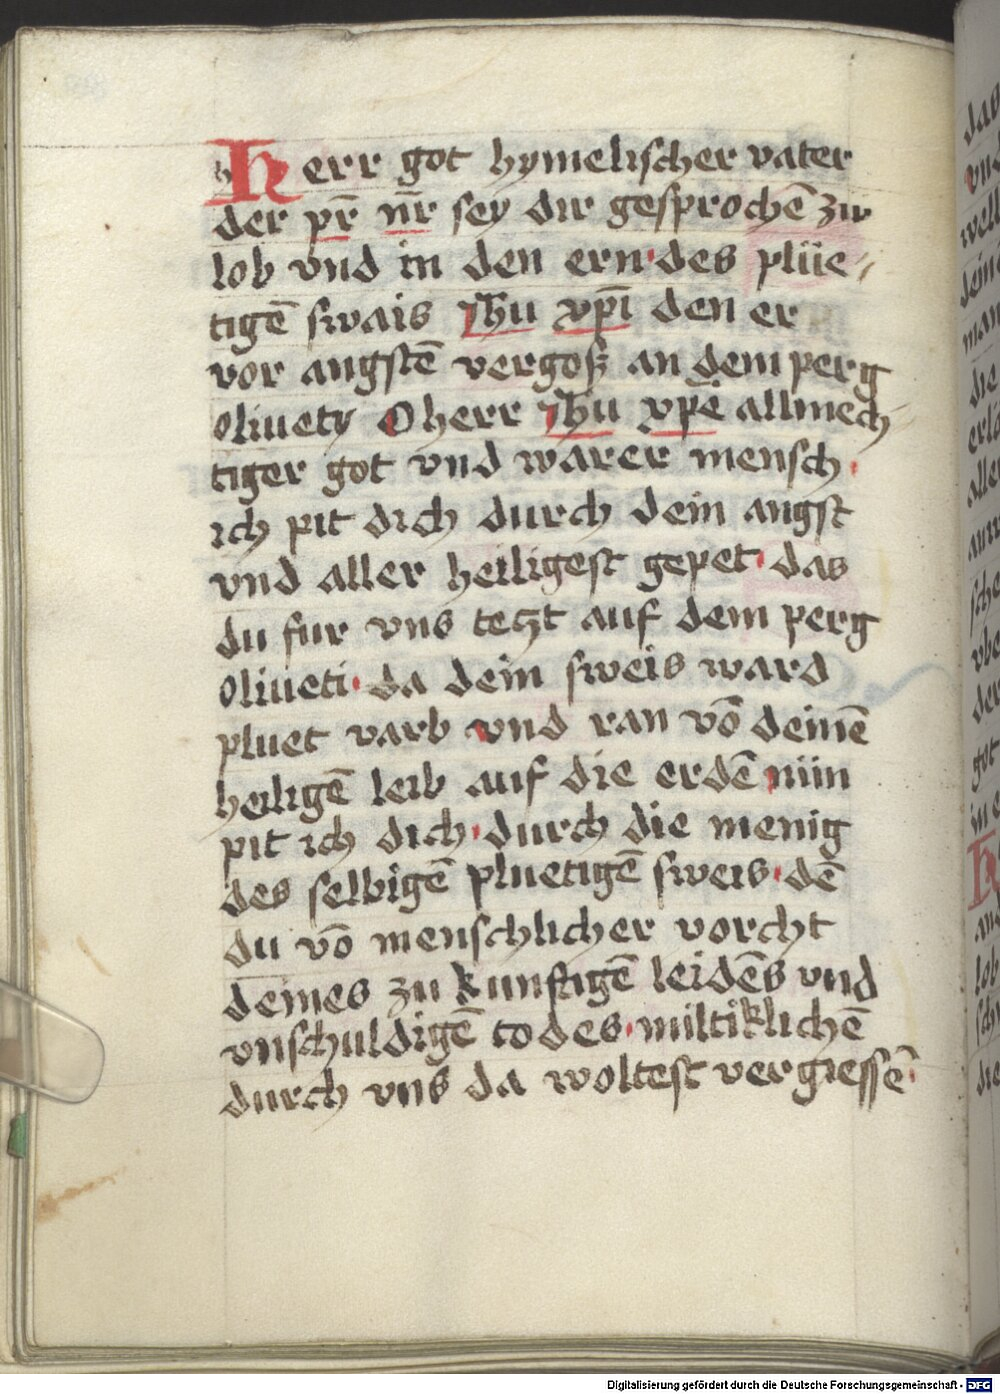 Herr got hymelischer vater
der pr̄ nr̄ sey dir gesprochē zw
lob vnd in den ern·des plüe⸗
tigē swais Jh̄u xp̄i den er
vor angstē vergosz an dem perg
oliuety O herr Jh̄u xp̄e allmech⸗
tiger got vnd warer mensch·
ich pit dich durch dein angst
vnd aller heiligest gepet·das
du fur vns tetzt auf dem perg
oliueti·da dein sweis ward
pluet varb vnd ran vō deinē
heiligē leib auf die erdē nün
pit ich dich·durch die menig
des selbigē pluetigē sweis·dē
du vō menschlicher vorcht
deines zu kunftigē leidēs vnd
vnschuldigē todes·miltiklichē
durch vns da woltest vergiessē·
Digitalisierung gefördert durch die Deutsche Forschungsgemeinschaft - DFG